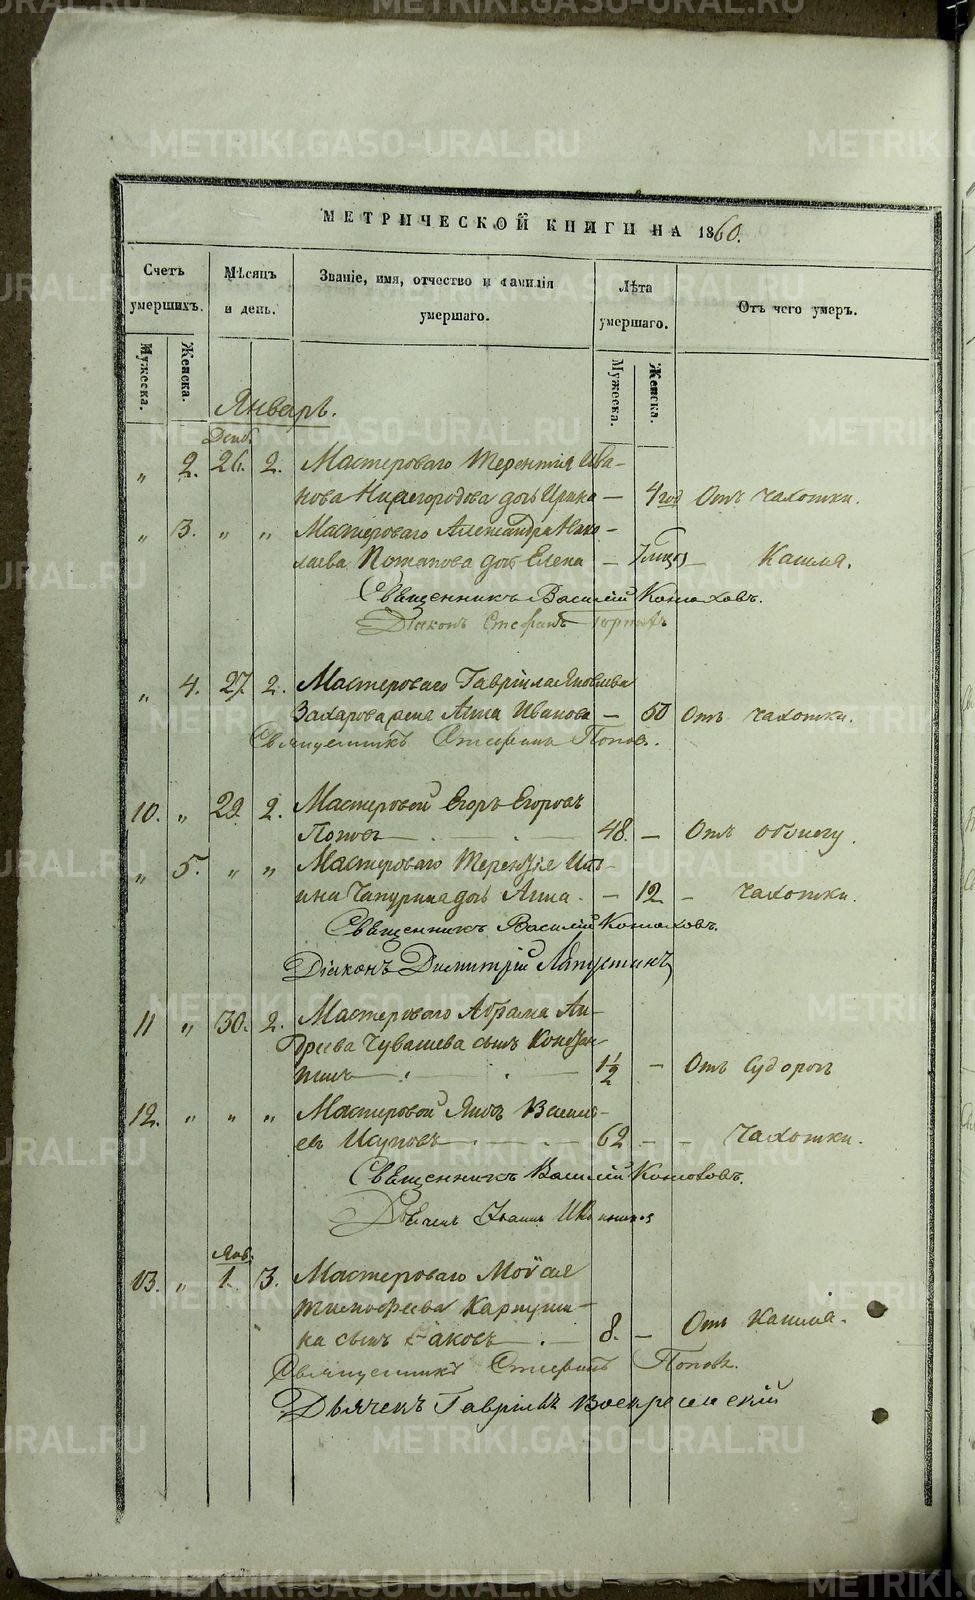 METRIKI.GASO-URAL.RU
МЕТРИЧЕСКОЙ КНИГИ НА 1860.
Счетъ умершихъ.
Мѣсяцъ и день.
Званіе, имя, отчество и фамилія умершаго.
Лѣта умершаго.
Отъ чего умеръ.
Мужеска.
Женска.
Мужеска.
Женска.
Январь.
Декб.
„ 2. 26. 2. Мастероваго Терентія Ива-
нова Нижегородова дочь Ирина — 4 год Отъ чахотки.
„ 3. „ „ Мастероваго Александра Нико-
лаева Потапова дочь Елена — 7 мцов — Кашля.
Священникъ Василій Конюховъ.
Діаконъ Стефанъ
„ 4. 27. 2. Мастероваго Гавріила Яковлева
Захарова жена Анна Иванова — 50 Отъ чахотки.
Священникъ Стефанъ Попов.
10. „ 29. 2. Мастеровой Егоръ Егоровъ
Поповъ — 48. — Отъ
„ 5. „ „ Мастероваго Терентія Иль-
ина Чапурина дочь Анна. — 12 — чахотки.
Священникъ Василій Конюховъ.
Діаконъ Димитрій Лапустинъ
11 „ 30. 2. Мастероваго Абрама Ан-
дреева Чувашева сынъ Констан-
тинъ — 1½ — Отъ судорогъ
12. „ „ „ Мастеровой Яковъ Василь-
евъ Исуповъ — 62 — — Чахотки.
Священникъ Василій Конюховъ.
Іоаннъ
Янв.
13. „ 1. 3. Мастероваго Моѵсея
Тимофеева Карпуши-
на сынъ Іаковъ — 8. — Отъ Кашля.
Священникъ Стефанъ Поповъ.
Дьячекъ Гавріилъ Воскресенскій